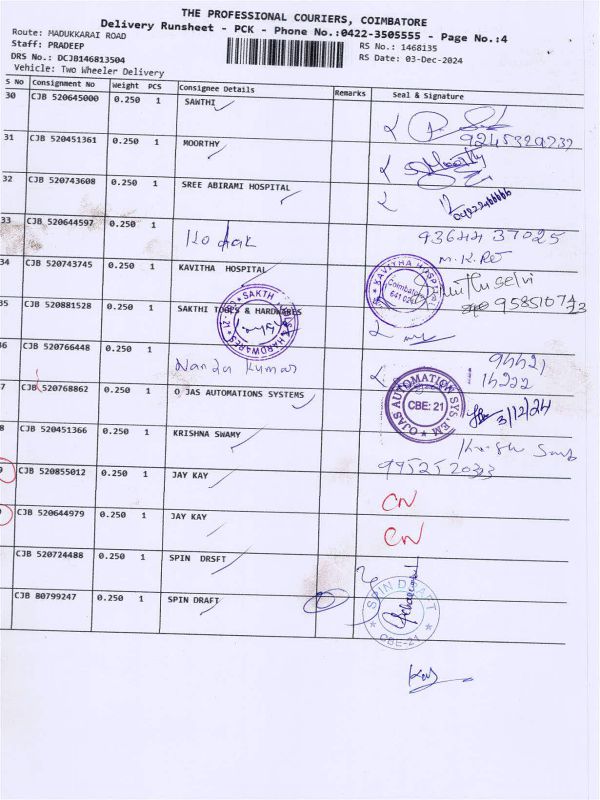 THE PROFESSIONAL COURIERS, COIMBATORE
Delivery Runsheet - PCK - Phone No.:0422-3505555 - Page No.:4
Route: MADUKKARAI ROAD
Staff: PRADEEP
RS No.: 1468135
DRS No.: DCJB146813504
RS Date: 03-Dec-2024
Vehicle: Two Wheeler Delivery
S No Consignment No Weight PCS Consignee Details Remarks Seal & Signature
30 CJB 520645000 0.250 1 SAWTHI
9245329232
31 CJB 520451361 0.250 1 MOORTHY
Moorthy
32 CJB 520743608 0.250 1 SREE ABIRAMI HOSPITAL
33 CJB 520644597 0.250 1 Kodak 9364437025
M.K.Rd
34 CJB 520743745 0.250 1 KAVITHA HOSPITAL
KAVITHA HOSPITAL Coimbatore 641 021
35 CJB 520881528 0.250 1 SAKTHI TOOLS & HARDWARES
36 CJB 520766448 0.250 1 Nanda Kumar
7 CJB 520768862 0.250 1 O JAS AUTOMATIONS SYSTEMS
OJAS AUTOMATION SYSTEM CBE: 21 3/12/24
8 CJB 520451366 0.250 1 KRISHNA SWAMY
9952520333
9 CJB 520855012 0.250 1 JAY KAY CN
CJB 520644979 0.250 1 JAY KAY CN
CJB 520724488 0.250 1 SPIN DRSFT
CJB 80799247 0.250 1 SPIN DRAFT
SPIN DRAFT CBE-21